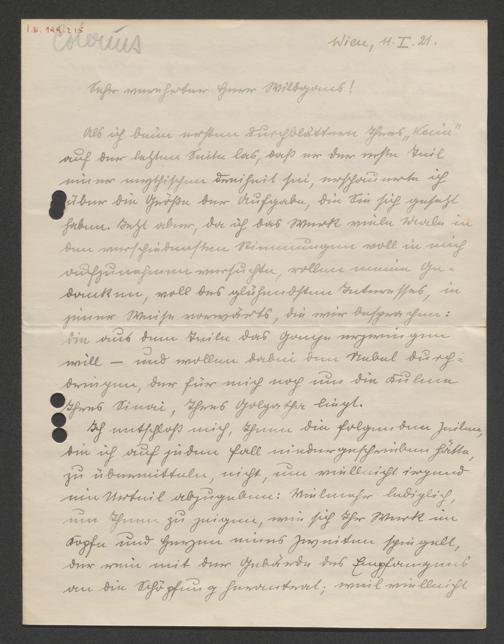 I.N. 144.215
Colerus
Wien, 11. I. 21.
Sehr verehrter Herr Wildgans!
Als ich beim ersten Durchblättern Ihres „Kain"
auf der letzten Seite las, daß er der erste Teil
einer mythischen Dreiheit sei, erschauerte ich
über die Größe der Aufgabe, die Sie sich gesetzt
haben. Jetzt aber, da ich das Werk viele Male in
den verschiedensten Stimmungen voll in mich
aufzunehmen versuchte, rollen meine Ge-
danken, voll des glühendsten Interesses, in
jener Weise vorwärts, die wir besprachen:
die aus dem Teile das Ganze erzwingen
will — und wollen dabei den Nebel durch-
dringen, der für mich noch um die Kulme
Ihres Sinai, Ihres Golgatha liegt.
Ich entschloß mich, Ihnen die folgenden Zeilen,
die ich auf jeden Fall niedergeschrieben hätte,
zu übermitteln, nicht, um vielleicht irgend
ein Urteil abzugeben: Vielmehr lediglich,
um Ihnen zu zeigen, wie sich Ihr Werk im
Kopfe und Herzen eines Zweiten spiegelt,
der rein mit der Gebärde des Empfangens
an die Schöpfung herantrat; weil vielleicht